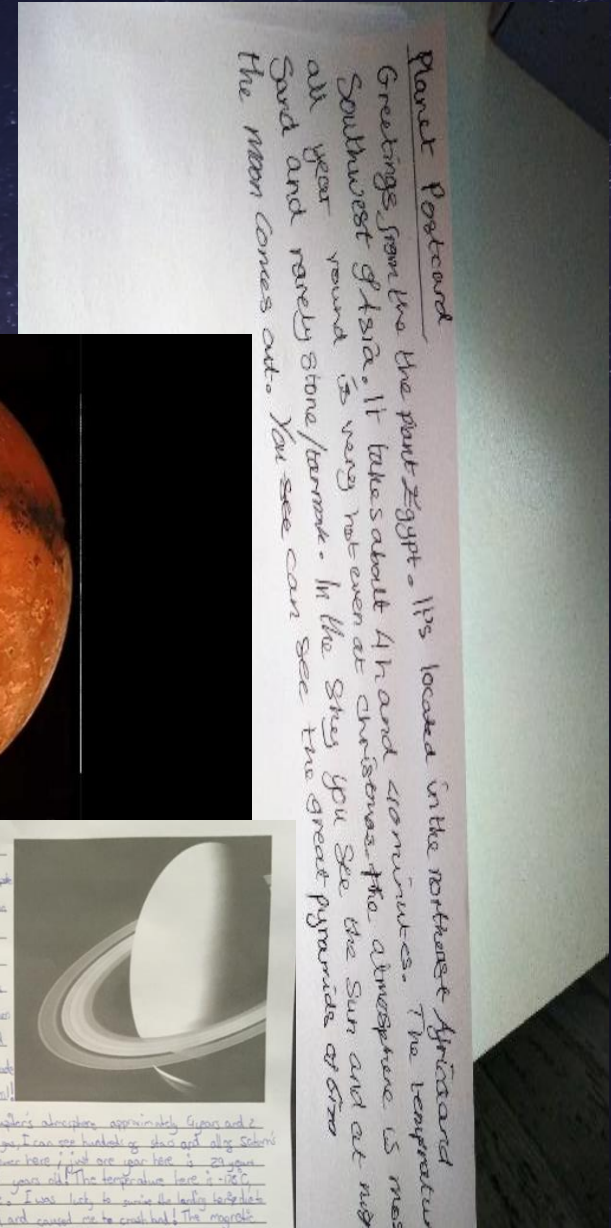 Planet Postcard
Greetings from the the plant Egypt. It's located in the northeast Africa and
Southwest of Asia. It takes about 4h and 40 minutes. The temperatu
all year round is very hot even at christmas. the atmosphere is mos
Sand and rarely stone/tarmak. In the sky you see the sun and at nig
the moon comes out. You see can see the great pyramids of Giza
atmosphere, approximately 4 years and 2
I can see hundreds of stars and all of Saturn's
here; just one year here is 29 years
years old! The temperature here is -178°C,
I was lucky to survive the landing
and caused me to crash bad! The magnetic